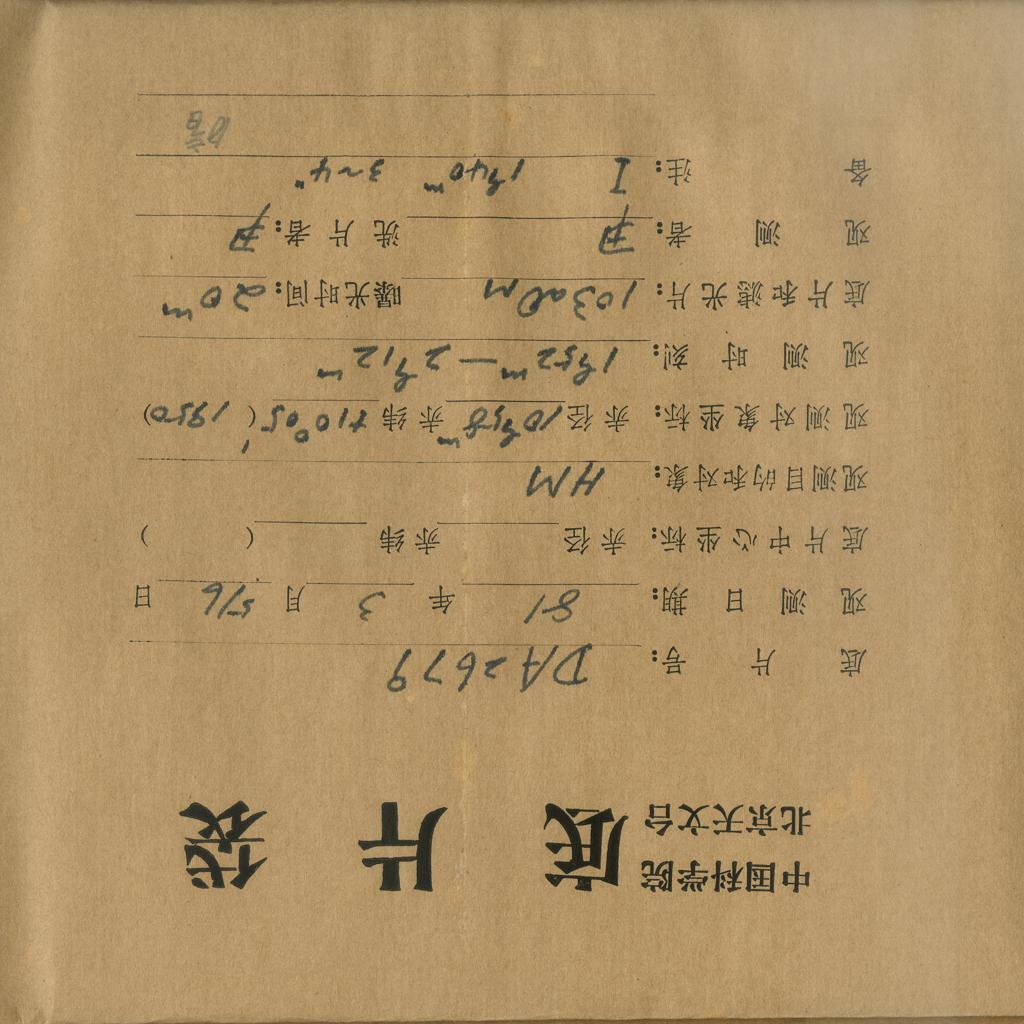 中国科学院
北京天文台 底片袋
底片号: DA2679
观测日期: 81 年 3 月 5/6 日
底片中心坐标: 赤径 赤纬 ( )
观测目的和对象: HM
观测对象坐标: 赤径 10h58m 赤纬 +10°05′ (1950)
观测时刻: 1h52m — 2h12m
底片和滤光片: 103aO M 曝光时间: 20m
观测者: 尹 洗片者: 尹
备注: I 1h40m 3~4"